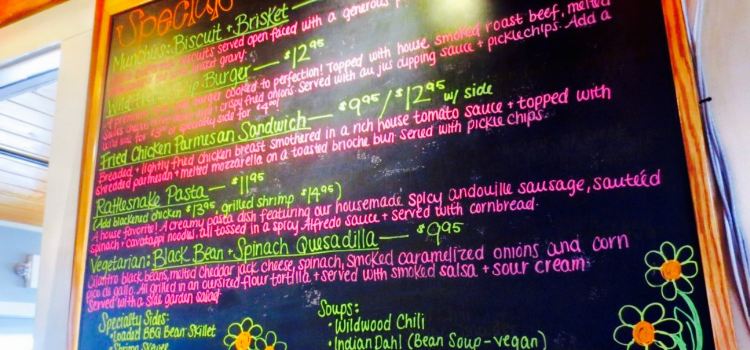 Specials
Munchies: Biscuit + Brisket —
biscuits served open faced with a generous
gravy.
Burger — $12.95
burger cooked to perfection! Topped with house smoked roast beef, melted
crispy fried onions. Served with au jus dipping sauce + pickle chips. Add a
or specialty side for
Fried Chicken Parmesan Sandwich — $9.95 / $12.95 w/ side
Breaded + lightly fried chicken breast smothered in a rich house tomato sauce + topped with
shredded parmesan + melted mozzarella on a toasted brioche bun. Served with pickle chips.
Rattlesnake Pasta — $11.95
(Add blackened chicken $13.95, grilled shrimp $14.95)
A house favorite! A creamy pasta dish featuring our housemade spicy andouille sausage, sautéed
spinach + cavatappi noodles, all tossed in a spicy Alfredo sauce + served with cornbread.
Vegetarian: Black Bean + Spinach Quesadilla — $9.95
Cilantro black beans, melted cheddar jack cheese, spinach, smoked caramelized onions and corn
pico de gallo. All grilled in an oversized flour tortilla + served with smoked salsa + sour cream.
Served with a side garden salad
Specialty Sides:
• Loaded BBQ Bean Skillet
• Shrimp Skewer
Soups:
• Wildwood Chili
• Indian Dahl (Bean Soup - vegan)